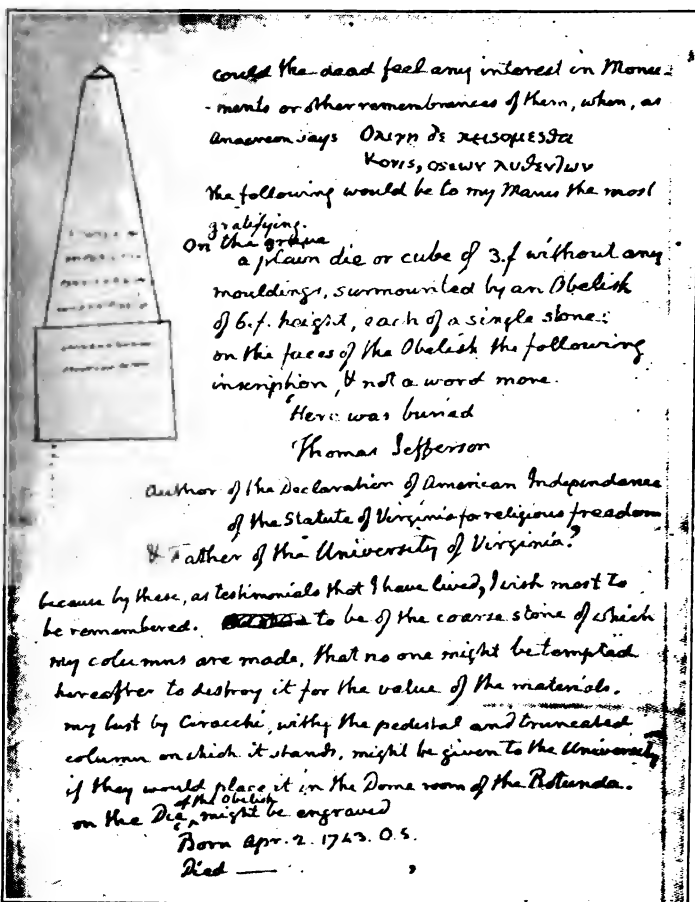 could the dead feel any interest in Monu-
-ments or other remembrances of them, when, as
Anacreon says Ολιγη δε κεισομεσθα
Κονις, οσεων λυθεντων
the following would be to my Manes the most
gratifying.
On the grave
a plain die or cube of 3.f without any
mouldings, surmounted by an Obelisk
of 6.f. height, each of a single stone:
on the faces of the Obelisk the following
inscription, & not a word more.
'Here was buried
Thomas Jefferson
Author of the Declaration of American Independance
of the Statute of Virginia for religious freedom
& Father of the University of Virginia.'
because by these, as testimonials that I have lived, I wish most to
be remembered. to be of the coarse stone of which
my columns are made, that no one might be tempted
hereafter to destroy it for the value of the materials.
my bust by Ciracchi, with the pedestal and truncated
column on which it stands, might be given to the University
if they would place it in the Dome room of the Rotunda.
on the Die of the Obelisk might be engraved
Born Apr. 2. 1743. O.S.
Died —